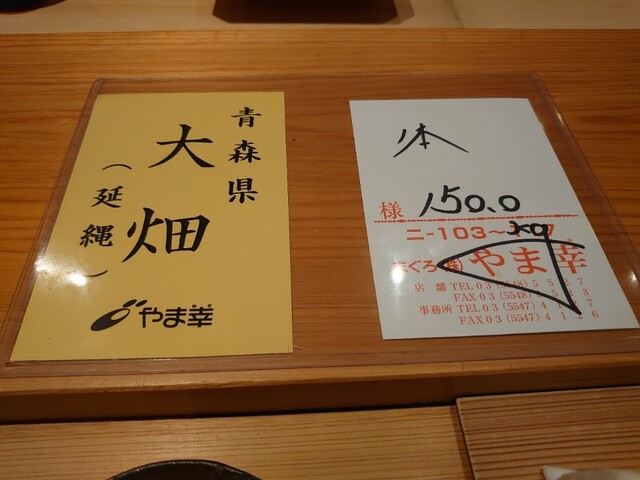 青森県
大畑
（延縄）
やま幸
様
150.0
kg
ニ-103〜
まぐろ (株) やま幸
店 舗 TEL 03 (5548)
FAX 03 (5548)
事務所 TEL 03 (5547)
FAX 03 (5547) 4126